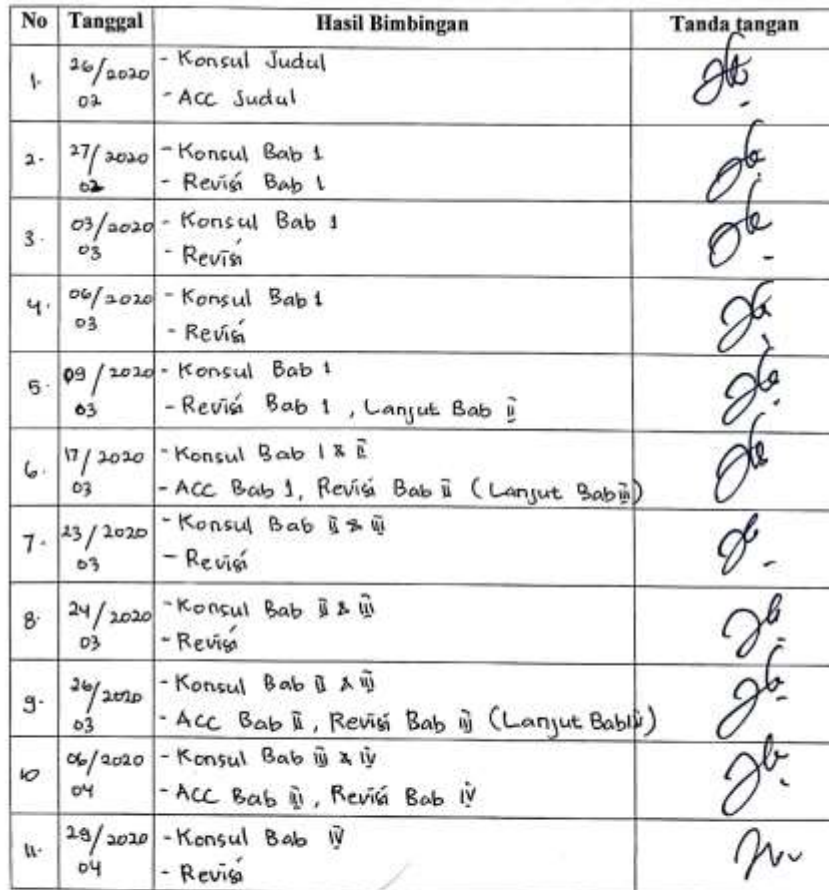 No Tanggal Hasil Bimbingan Tanda tangan
1. 26/2020 - Konsul Judul
02 - ACC Judul
2. 27/2020 - Konsul Bab 1
02 - Revisi Bab 1
3. 03/2020 - Konsul Bab 1
03 - Revisi
4. 06/2020 - Konsul Bab 1
03 - Revisi
5. 09/2020 - Konsul Bab 1
03 - Revisi Bab 1, Lanjut Bab ii
6. 17/2020 - Konsul Bab 1 & ii
03 - ACC Bab 1, Revisi Bab ii (Lanjut Bab iii)
7. 23/2020 - Konsul Bab ii & iii
03 - Revisi
8. 24/2020 - Konsul Bab ii & iii
03 - Revisi
9. 26/2020 - Konsul Bab ii & iii
03 - ACC Bab ii, Revisi Bab iii (Lanjut Bab iv)
10 06/2020 - Konsul Bab iii & iv
04 - ACC Bab iii, Revisi Bab iv
11. 29/2020 - Konsul Bab iv
04 - Revisi